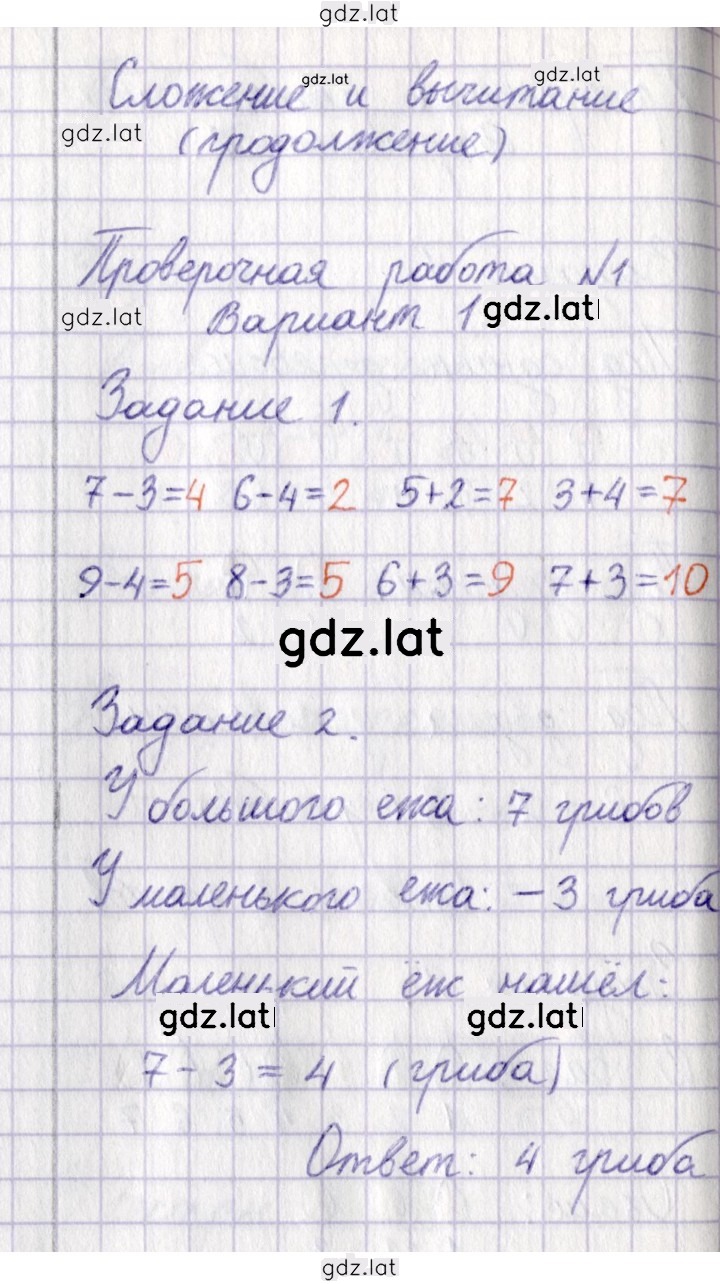 gdz.lat
Сложение и вычитание
gdz.lat
gdz.lat
gdz.lat
(продолжение)
Проверочная работа №1
gdz.lat
Вариант 1
gdz.lat
Задание 1.
7-3=4 6-4=2 5+2=7 3+4=7
9-4=5 8-3=5 6+3=9 7+3=10
gdz.lat
Задание 2.
У большого ежа: 7 грибов
У маленького ежа: -3 гриба
Маленький ёж нашёл:
gdz.lat
gdz.lat
7-3=4 (гриба)
Ответ: 4 гриба
gdz.lat